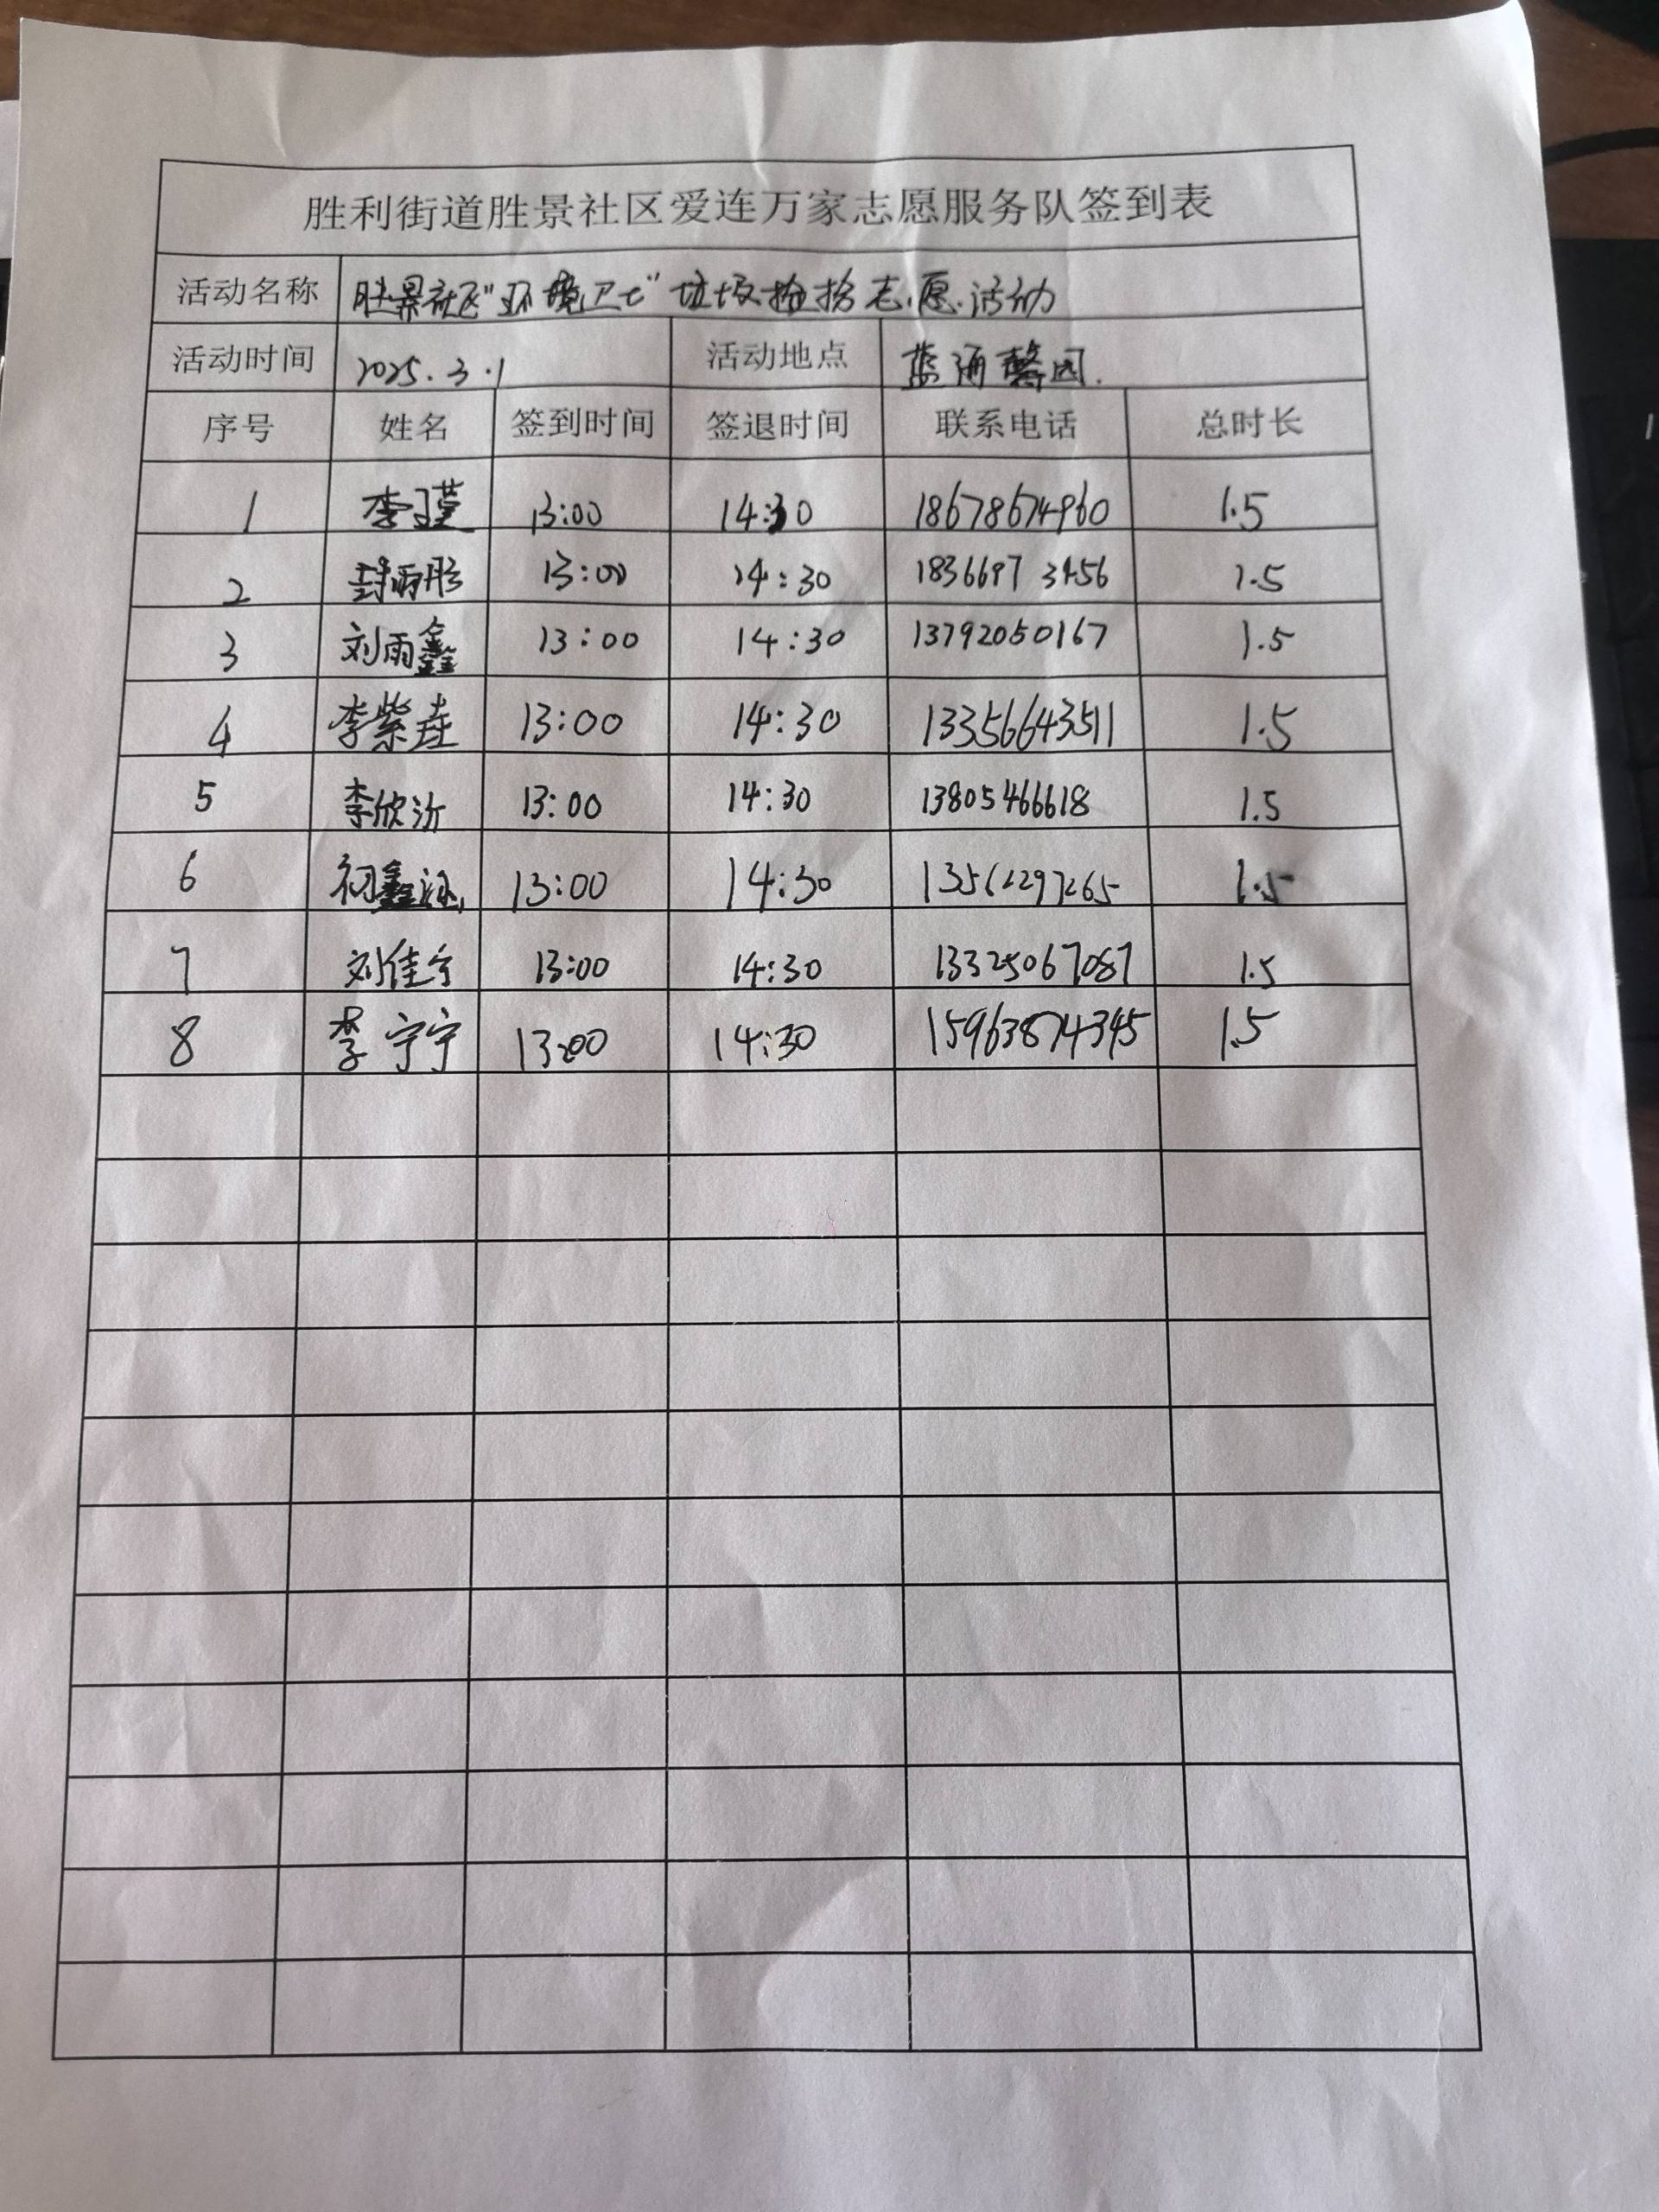 胜利街道胜景社区爱连万家志愿服务队签到表
活动名称 胜景社区"环境卫士"垃圾捡拾志愿活动
活动时间 2025.3.1 活动地点 蓝海馨园.
序号 姓名 签到时间 签退时间 联系电话 总时长
1 李瑾 13:00 14:30 18678674960 1.5
2 封雨彤 13:00 14:30 1836697 3456 1.5
3 刘雨鑫 13:00 14:30 13792050167 1.5
4 李紫垚 13:00 14:30 13356643511 1.5
5 李欣沂 13:00 14:30 13805466618 1.5
6 初鑫 13:00 14:30 13562297265 1.5
7 刘佳宁 13:00 14:30 13325067087 1.5
8 李宁宁 13:00 14:30 15963874345 1.5